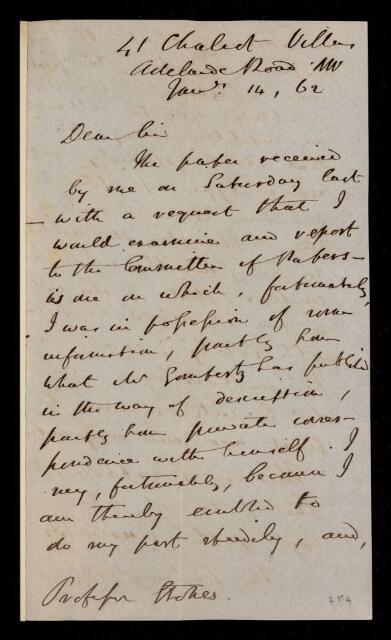 41 Chalcot Villas
Adelaide Road NW
Jany. 14, 62
Dear Sir
The paper received
by me on Saturday last
with a request that I
would examine and report
to the Committee of Papers—
is one on which, fortunately,
I was in possession of some
information, partly from
what Mr Gompertz has publish
in the way of description,
partly from private corres-
pondence with himself. I
say, fortunately, because I
am thereby enabled to
do my part speedily, and,
Professor Stokes.
254